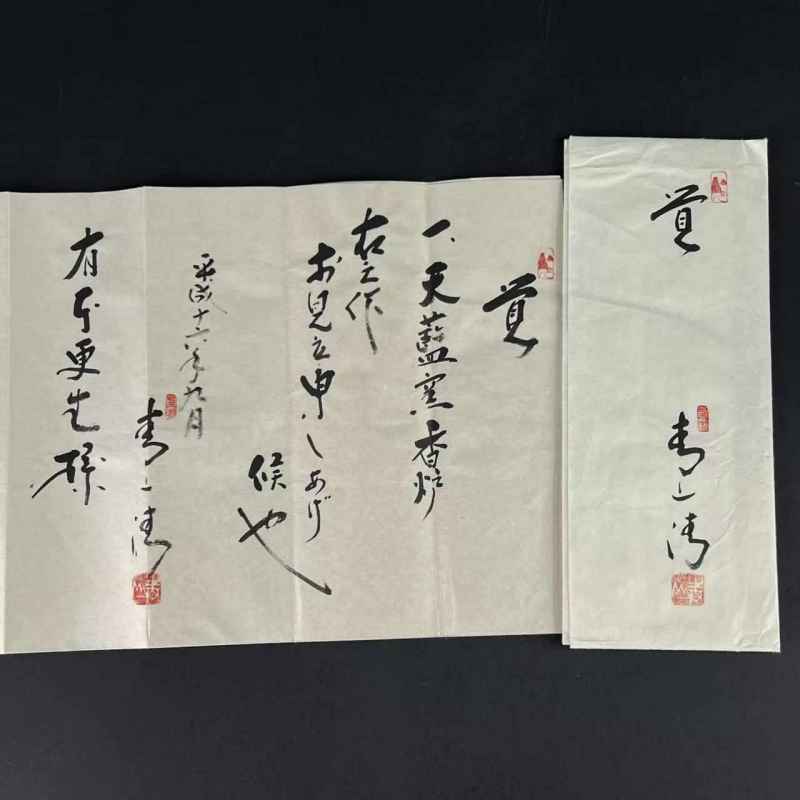 覚
一、天藍窯香炉
右之作
お見立申しあげ
候也
平成十六年九月
青山清
有本更生様
覚
青山清